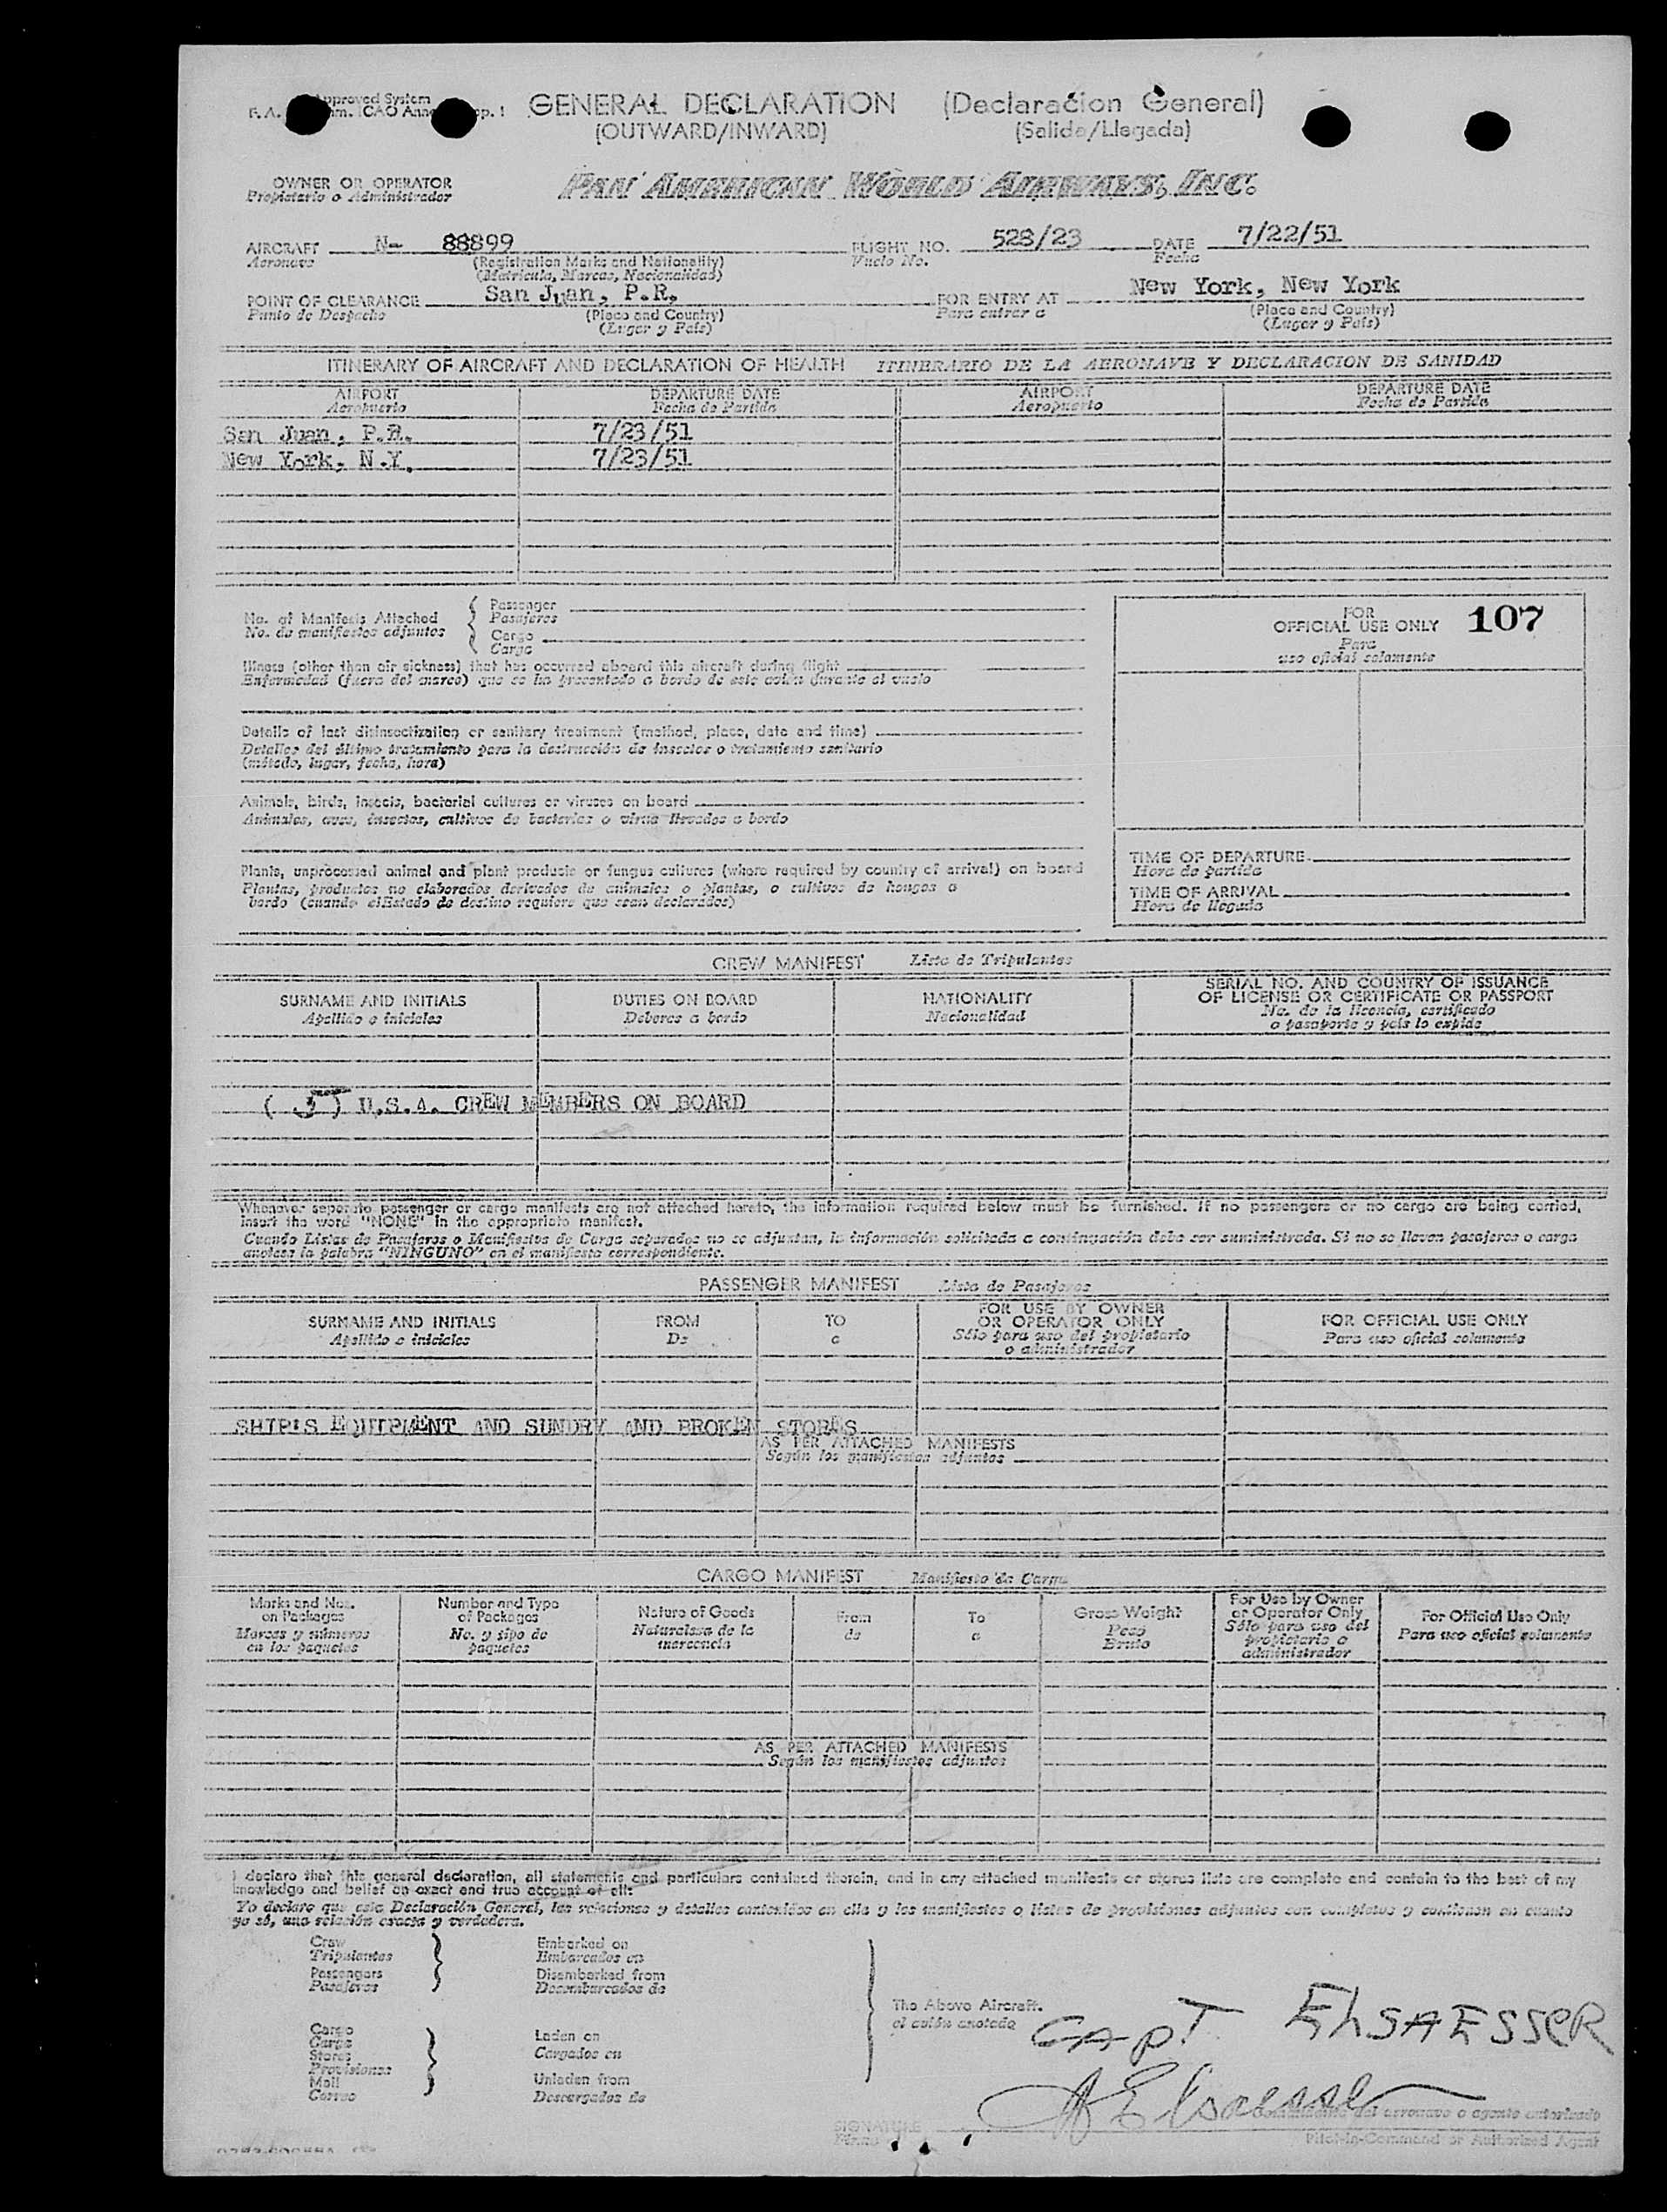 Approved System
F. A. mm. ICAO Anne pp. 1
GENERAL DECLARATION (Declaracion General)
(OUTWARD/INWARD) (Salida/Llegada)
OWNER OR OPERATOR PAN AMERICAN WORLD AIRWAYS, INC.
Propietario o Administrador
AIRCRAFT N- 88899 FLIGHT NO. 528/23 DATE 7/22/51
Aeronave (Registration Marks and Nationality) Vuelo No. Fecha
(Matricula, Marcas, Nacionalidad)
POINT OF CLEARANCE San Juan, P.R. FOR ENTRY AT New York, New York
Punto de Despacho (Place and Country) Para entrar a (Place and Country)
(Lugar y País) (Lugar y País)
ITINERARY OF AIRCRAFT AND DECLARATION OF HEALTH ITINERARIO DE LA AERONAVE Y DECLARACION DE SANIDAD
AIRPORT DEPARTURE DATE AIRPORT DEPARTURE DATE
Aeropuerto Fecha de Partida Aeropuerto Fecha de Partida
San Juan, P.R. 7/23/51
New York, N.Y. 7/23/51
No. of Manifests Attached
No. de manifiestos adjuntos
Passenger
Pasajeros
Cargo
Carga
FOR
OFFICIAL USE ONLY 107
Para
uso oficial solamente
Illness (other than air sickness) that has occurred aboard this aircraft during flight
Enfermedad (fuera del mareo) que se ha presentado a bordo de este avión durante el vuelo
Details of last disinsectization or sanitary treatment (method, place, date and time)
Detalles del último tratamiento para la destrucción de insectos o tratamiento sanitario
(método, lugar, fecha, hora)
Animals, birds, insects, bacterial cultures or viruses on board
Animales, aves, insectos, cultivos de bacterias o virus llevados a bordo
Plants, unprocessed animal and plant products or fungus cultures (where required by country of arrival) on board
Plantas, productos no elaborados derivados de animales o plantas, o cultivos de hongos a
bordo (cuando el Estado de destino requiere que sean declarados)
TIME OF DEPARTURE
Hora de partida
TIME OF ARRIVAL
Hora de llegada
CREW MANIFEST Lista de Tripulantes
SURNAME AND INITIALS DUTIES ON BOARD NATIONALITY SERIAL NO. AND COUNTRY OF ISSUANCE
OF LICENSE OR CERTIFICATE OR PASSPORT
Apellido o iniciales Deberes a bordo Nacionalidad No. de la licencia, certificado
o pasaporte y país lo expide
( 5 ) U.S.A. CREW MEMBERS ON BOARD
Whenever separate passenger or cargo manifests are not attached hereto, the information required below must be furnished. If no passengers or no cargo are being carried,
insert the word "NONE" in the appropriate manifest.
Cuando Listas de Pasajeros o Manifiestos de Carga separados no se adjuntan, la información solicitada a continuación debe ser suministrada. Si no se llevan pasajeros o carga
anotese la palabra "NINGUNO" en el manifiesto correspondiente.
PASSENGER MANIFEST Lista de Pasajeros
SURNAME AND INITIALS FROM TO FOR USE BY OWNER
OR OPERATOR ONLY FOR OFFICIAL USE ONLY
Apellido o iniciales De a Sólo para uso del propietario
o administrador Para uso oficial solamente
SHIP'S EQUIPMENT AND SUNDRY AND BROKEN STORES
AS PER ATTACHED MANIFESTS
Según los manifiestos adjuntos
CARGO MANIFEST Manifiesto de Carga
Marks and Nos.
on Packages
Marcas y números
en los paquetes
Number and Type
of Packages
No. y tipo de
paquetes
Nature of Goods
Naturaleza de la
mercancía
From
de
To
a
Gross Weight
Peso
Bruto
For Use by Owner
or Operator Only
Sólo para uso del
propietario o
administrador
For Official Use Only
Para uso oficial solamente
AS PER ATTACHED MANIFESTS
Según los manifiestos adjuntos
I declare that this general declaration, all statements and particulars contained therein, and in any attached manifests or stores lists are complete and contain to the best of my
knowledge and belief an exact and true account of all:
Yo declaro que esta Declaración General, las relaciones y detalles contenidos en ella y los manifiestos o listas de provisiones adjuntos son completos y contienen en cuanto
yo sé, una relación exacta y verdadera.
Crew
Tripulantes
Passengers
Pasajeros
Embarked on
Embarcados en
Disembarked from
Desembarcados de
Cargo
Carga
Stores
Provisiones
Mail
Correo
Laden on
Cargados en
Unladen from
Descargados de
The Above Aircraft.
el avión anotado
CAPT ELSAESSER
SIGNATURE
Firma
del aeronave o agente autorizado
Pilot-in-Command or Authorized Agent